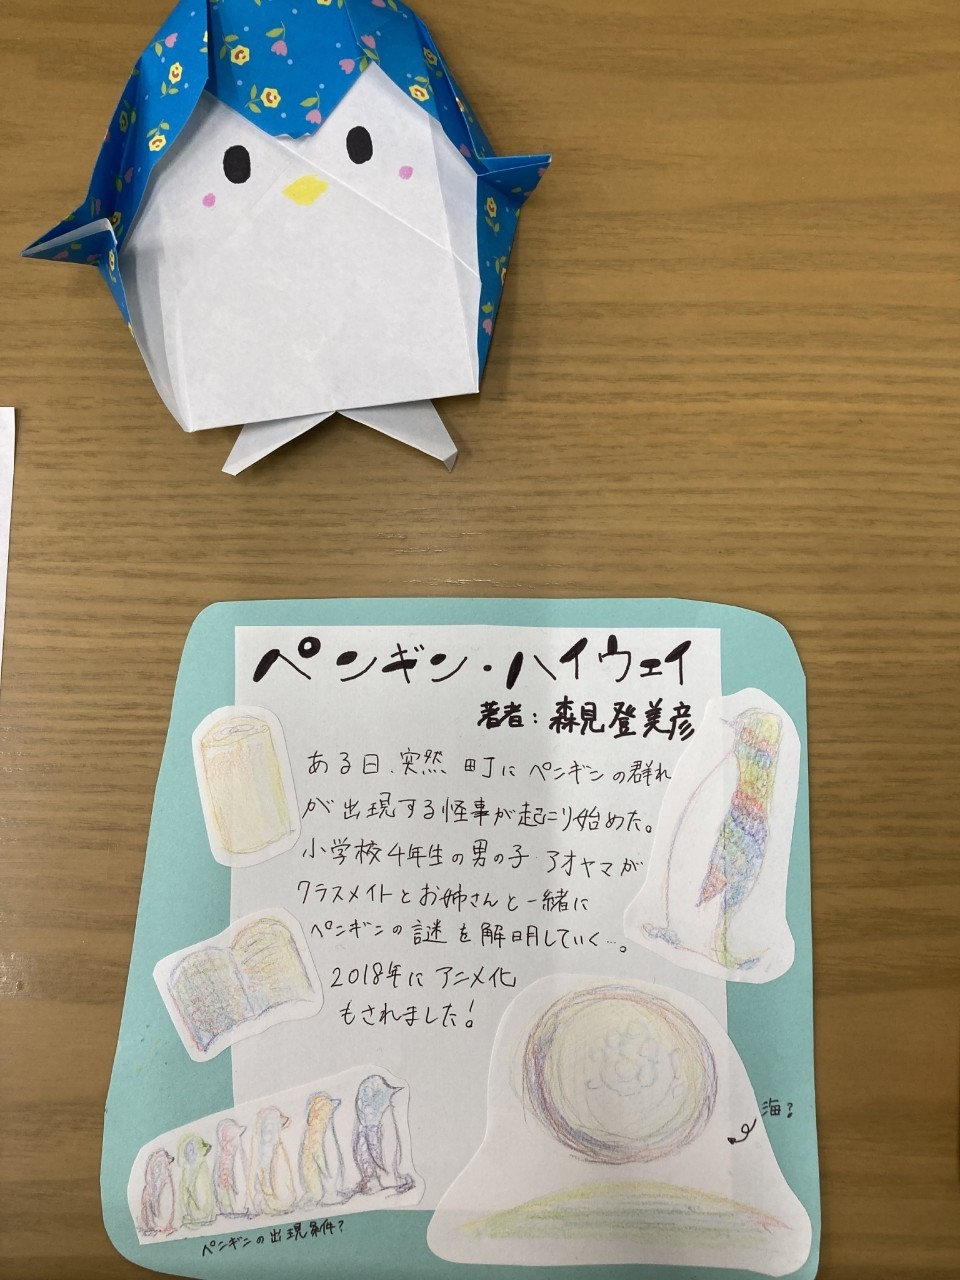 ペンギン・ハイウェイ
著者：森見登美彦
ある日、突然 町にペンギンの群れ
が出現する怪事が起こり始めた。
小学校4年生の男の子 アオヤマが
クラスメイトとお姉さんと一緒に
ペンギンの謎を解明していく…。
2018年にアニメ化
もされました！
海？
ペンギンの出現条件？